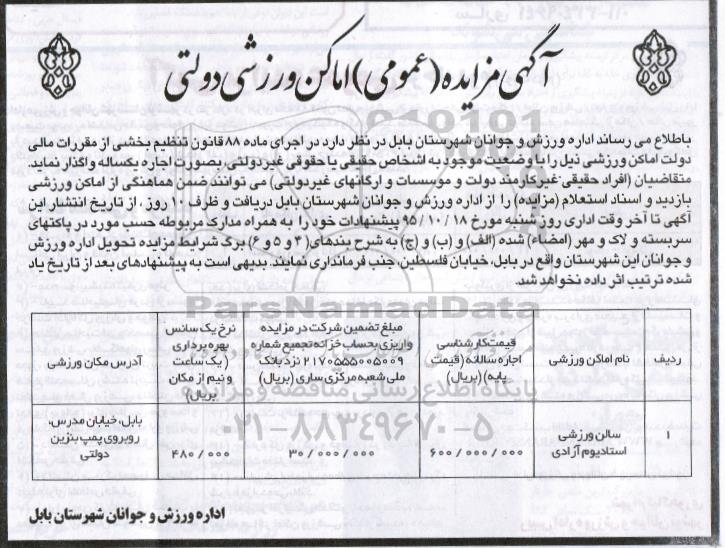 آگهی مزایده (عمومی) اماکن ورزشی دولتی
باطلاع می رساند اداره ورزش و جوانان شهرستان بابل در نظر دارد در اجرای ماده ۸۸ قانون تنظیم بخشی از مقررات مالی
دولت اماکن ورزشی ذیل را با وضعیت موجود به اشخاص حقیقی یا حقوقی غیردولتی، بصورت اجاره یکساله واگذار نماید.
متقاضیان (افراد حقیقی-غیرکارمند دولت و موسسات و ارگانهای غیردولتی) می توانند ضمن هماهنگی از اماکن ورزشی
بازدید و اسناد استعلام (مزایده) را از اداره ورزش و جوانان شهرستان بابل دریافت و ظرف ۱۰ روز، از تاریخ انتشار این
آگهی تا آخر وقت اداری روز شنبه مورخ ۱۸ / ۱۰ / ۹۵ پیشنهادات خود را به همراه مدارک مربوطه حسب مورد در پاکتهای
سربسته و لاک و مهر (امضاء) شده (الف) و (ب) و (ج) به شرح بندهای (۴ و ۵ و ۶) برگ شرایط مزایده تحویل اداره ورزش
و جوانان این شهرستان واقع در بابل، خیابان فلسطین، جنب فرمانداری نمایند. بدیهی است به پیشنهادهای بعد از تاریخ یاد
شده ترتیب اثر داده نخواهد شد.
ParsNamadData
ردیف
نام اماکن ورزشی
قیمت کارشناسی
اجاره سالانه (قیمت
پایه) (بریال)
مبلغ تضمین شرکت در مزایده
واریزی بحساب خزانه تجمیع شماره
۲۱۷۰۵۵۵۰۰۵۰۰۹ نزد بانک
ملی شعبه مرکزی ساری (بریال)
نرخ یک سانس
بهره برداری
(یک ساعت
و نیم از مکان
بریال)
آدرس مکان ورزشی
۱
سالن ورزشی
استادیوم آزادی
۶۰۰/۰۰۰/۰۰۰
۳۰/۰۰۰/۰۰۰
۴۸۰/۰۰۰
بابل، خیابان مدرس،
روبروی پمپ بنزین
دولتی
پایگاه اطلاع رسانی مناقصه و مزایده
۰۲۱-۸۸۳۴۹۶۷۰-۵
اداره ورزش و جوانان شهرستان بابل